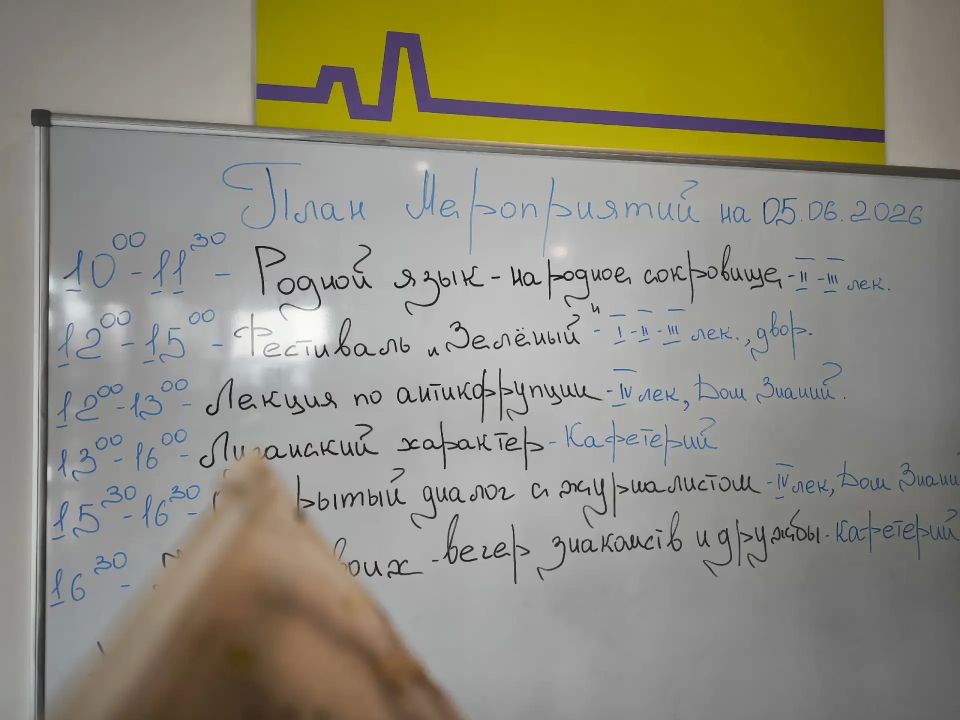 План Мероприятий на 05.06.2026
10⁰⁰-11³⁰ - Родной язык - народное сокровище - II - III лек.
12⁰⁰-15⁰⁰ - Фестиваль "Зелёный" - I - II - III лек., двор.
12⁰⁰-13⁰⁰ - Лекция по антикоррупции - IV лек, Дом Знаний.
13⁰⁰-16⁰⁰ - характер - Кафетерий
15³⁰-16³⁰ - диалог с журналистом - IV лек, Дом Знаний
16³⁰ - - вечер знакомств и дружбы - Кафетерий